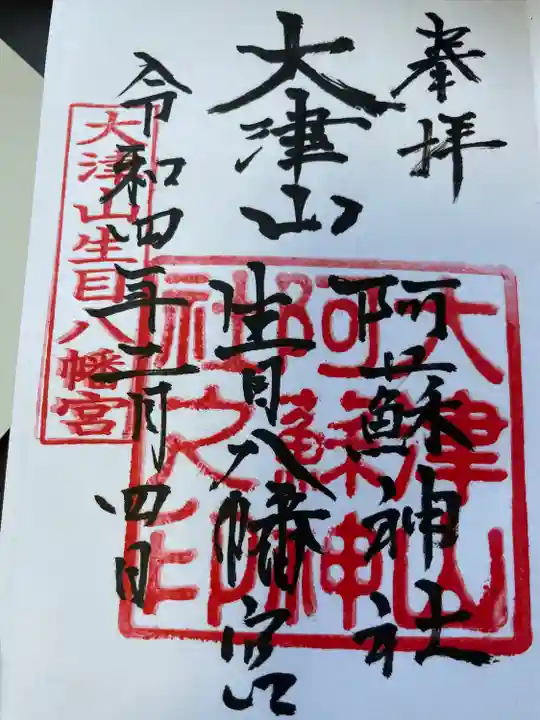 奉拝
大津山
阿蘇神社
生目八幡宮
令和四年二月四日
大津山阿蘇神社之印
大津山生目八幡宮